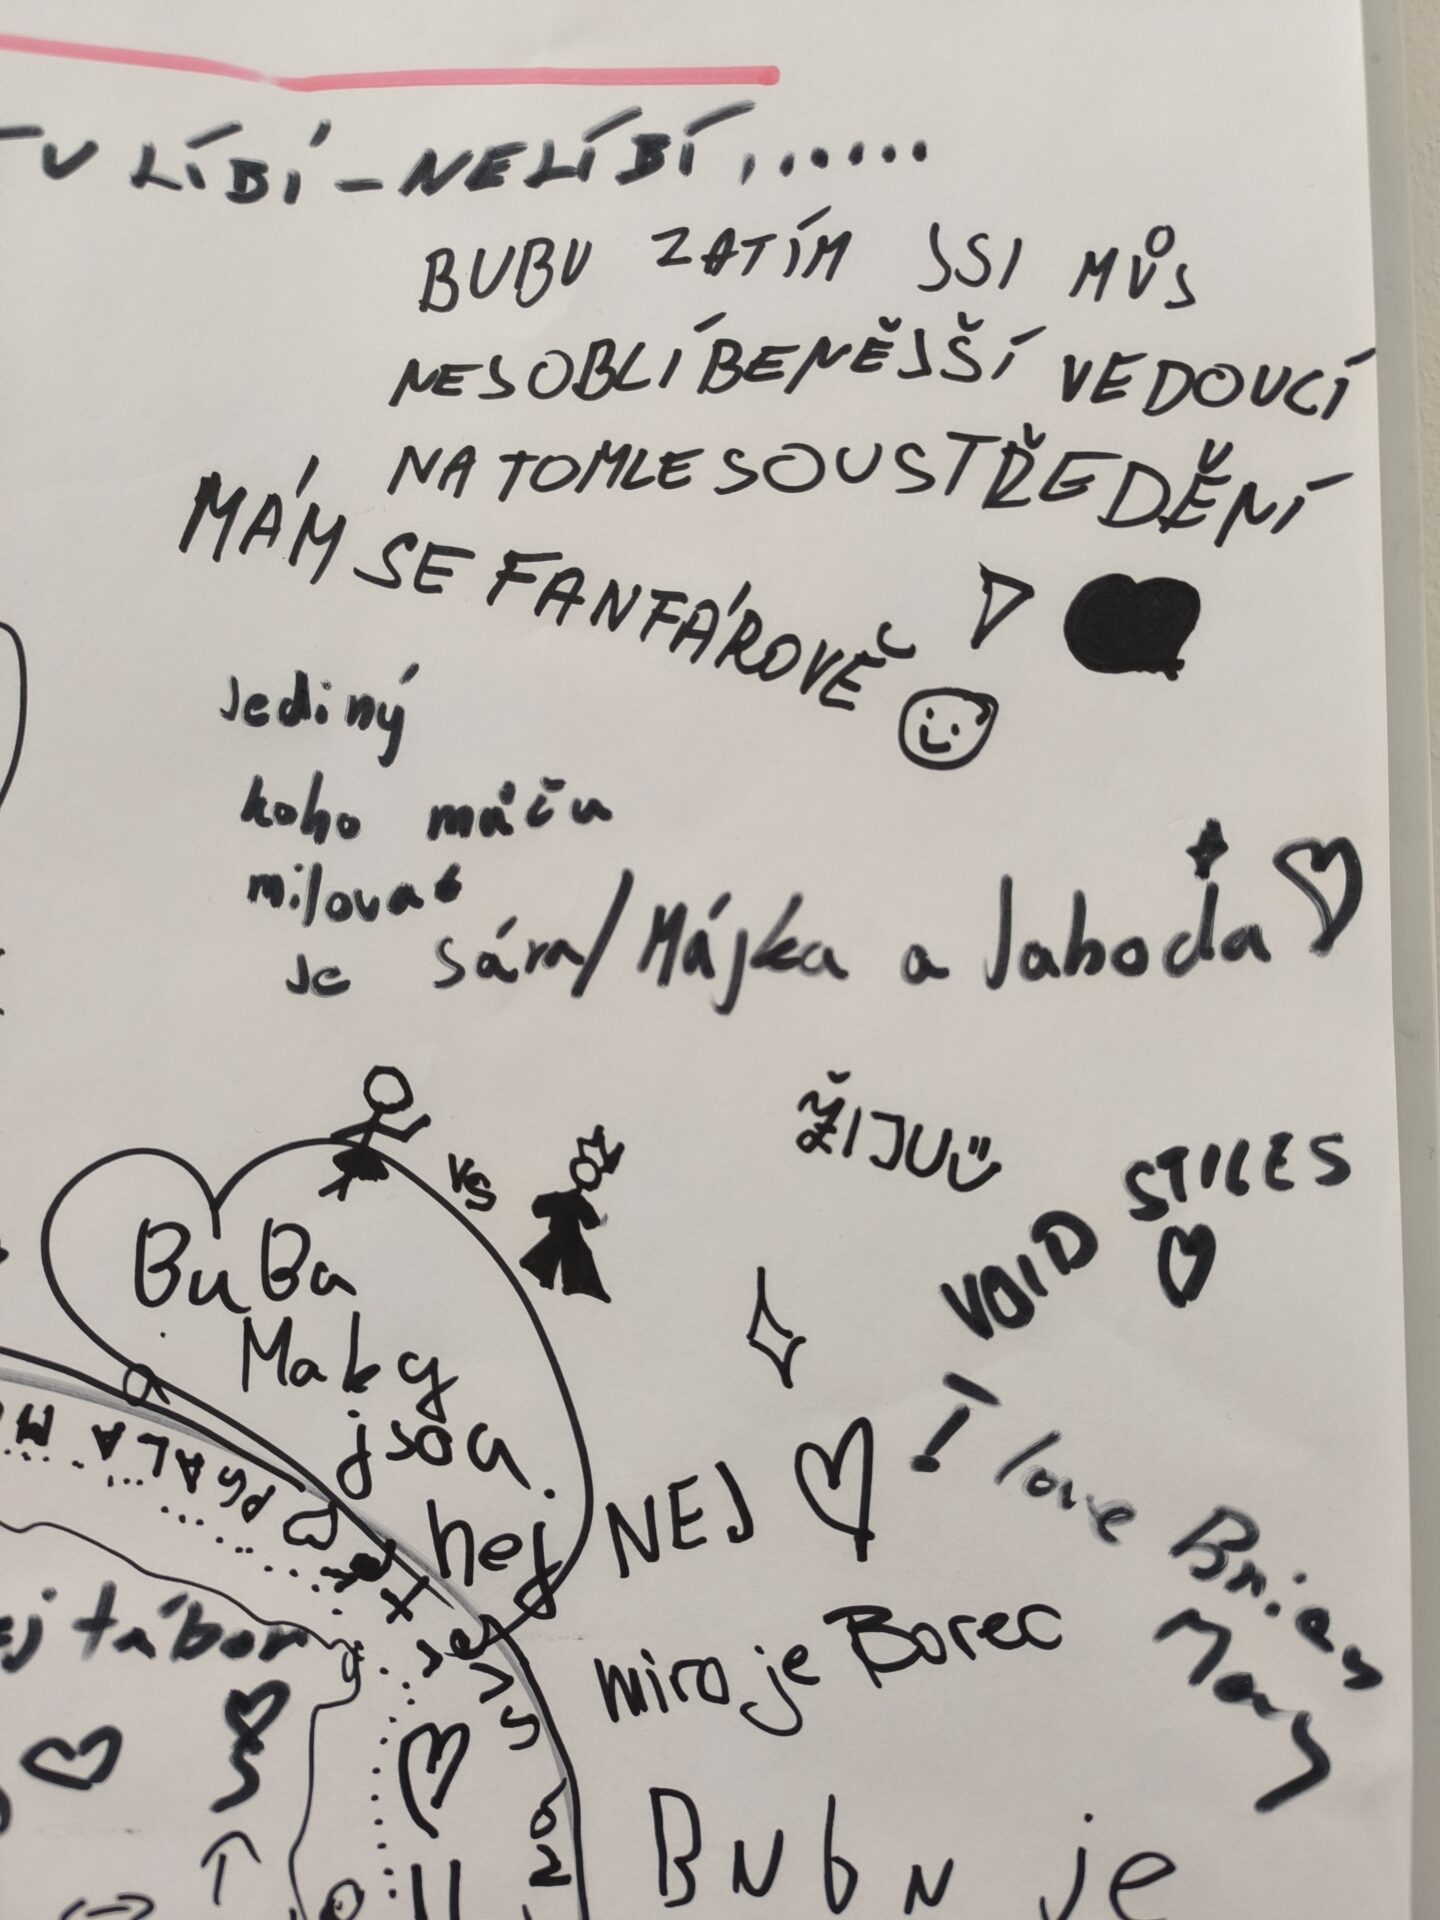 LÍBÍ - NELÍBÍ, ......
BUBU ZATÍM JSI MŮJ
NEJOBLÍBENĚJŠÍ VEDOUCÍ
NA TOMLE SOUSTŘEDĚNÍ
MÁM SE FANFÁROVĚ
Jediný
koho můžu
milovat
je Sára/Májka a Jahoda
ŽIJU
vs
VOID STILES
BuBa
Maky
jsou
nej
NEJ
I love Brian
May
miro je Borec
tábor
Bubu je